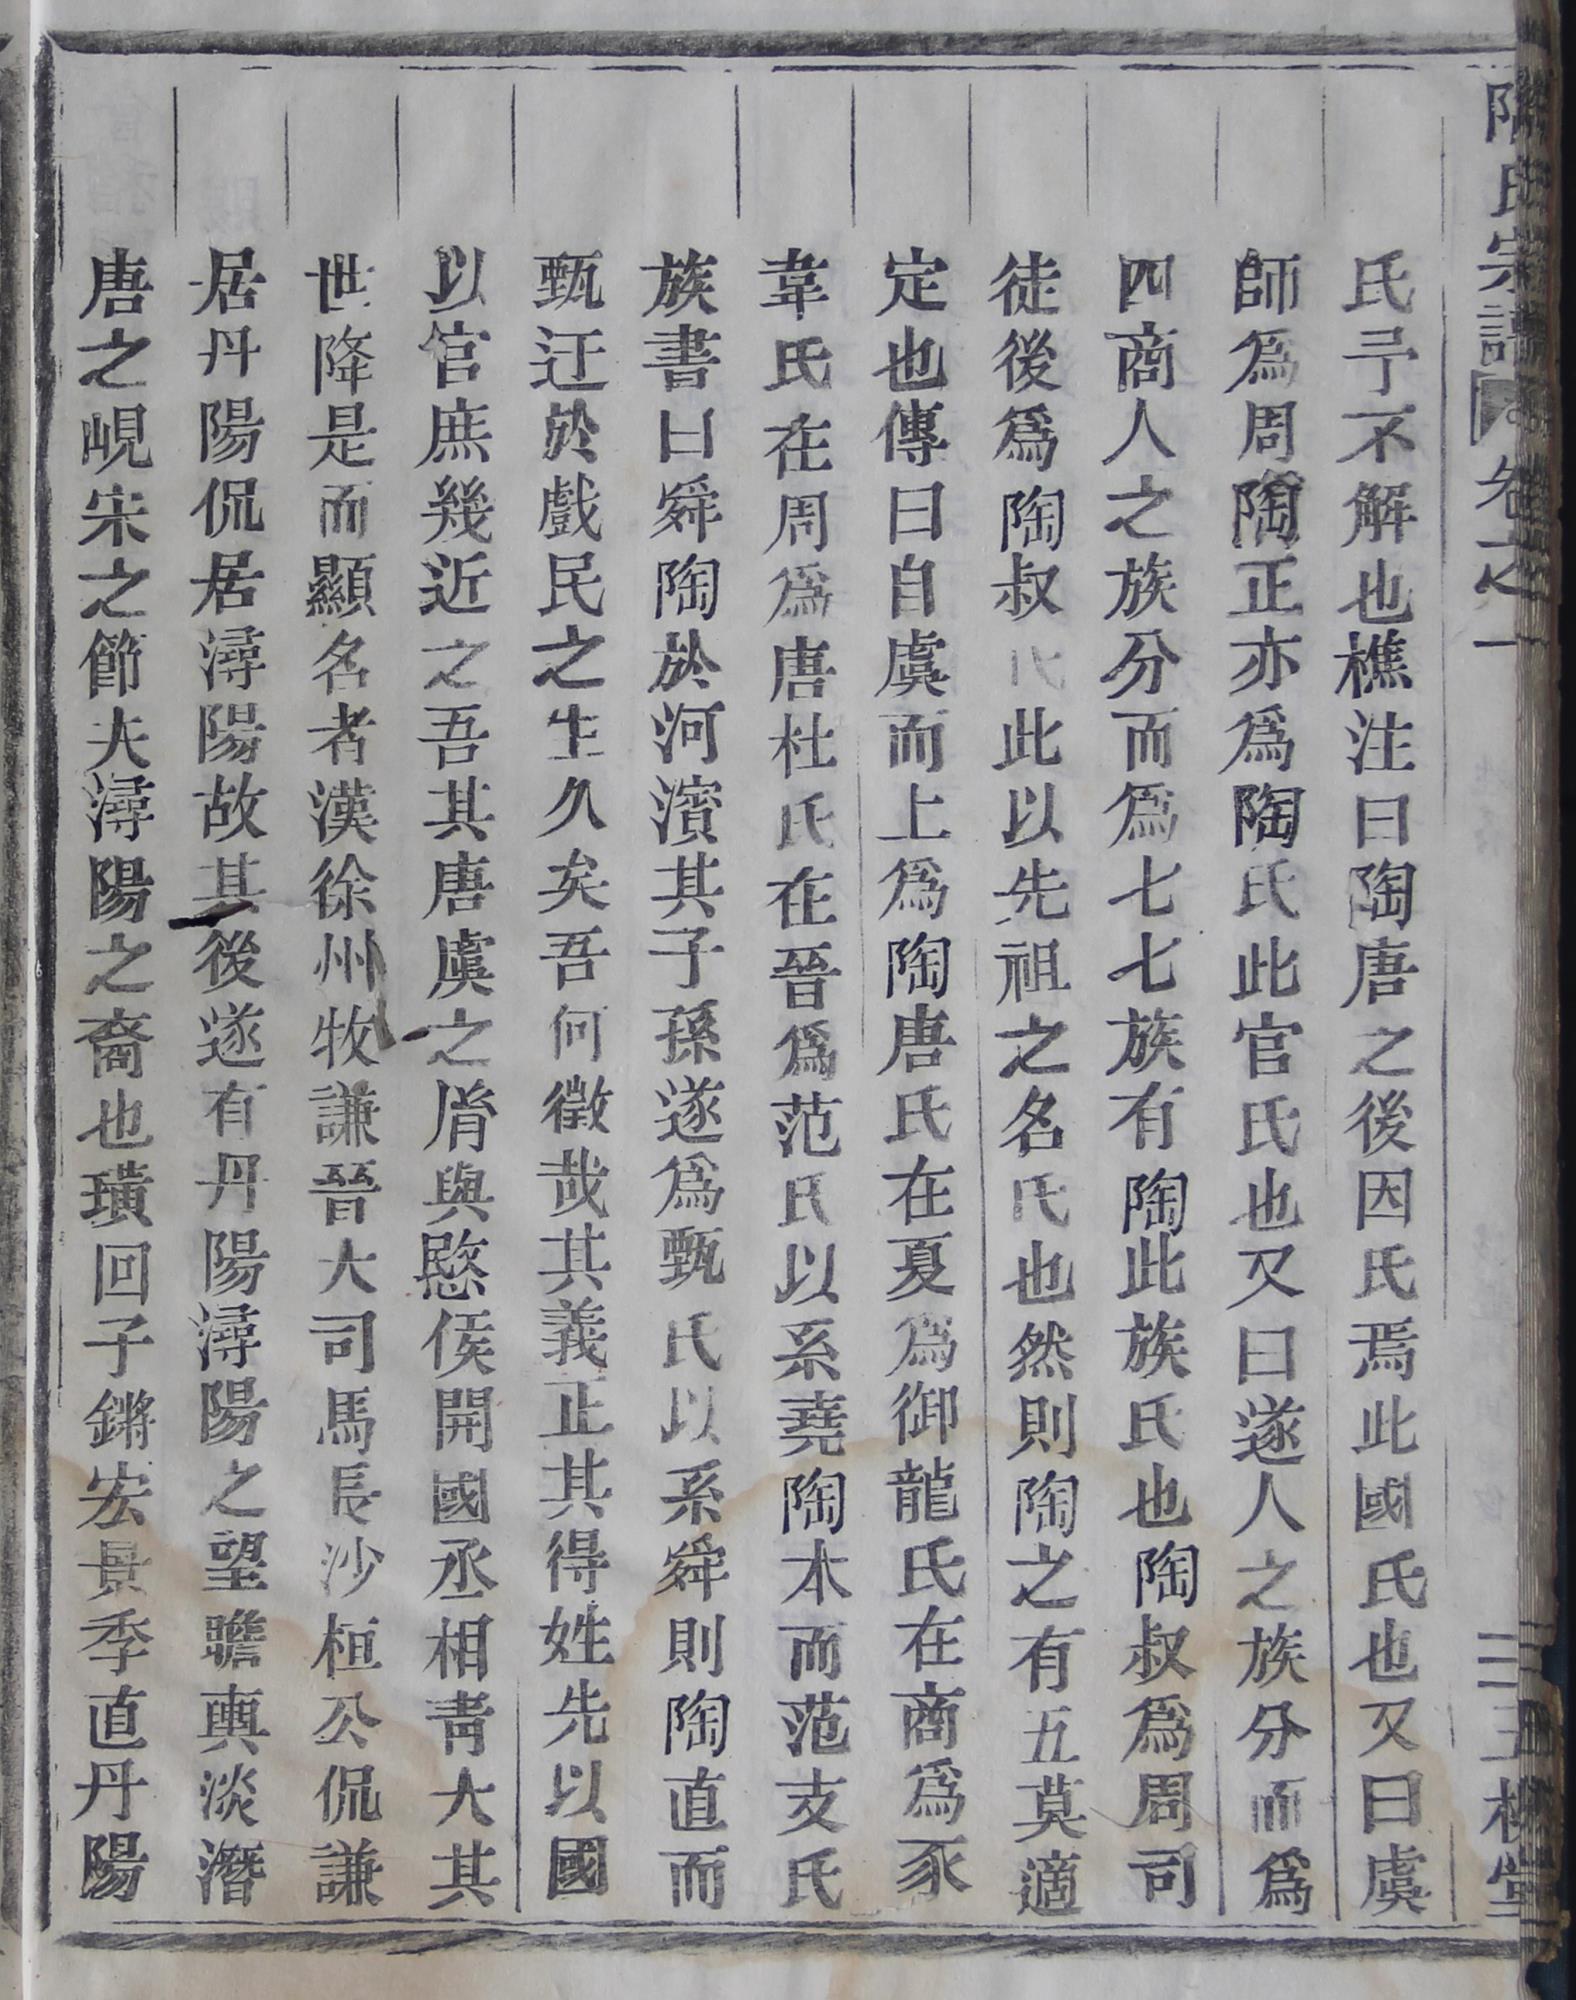 陶氏宗譜 卷之一 二 五柳堂
氏予不解也樵注曰陶唐之後因氏焉此國氏也又曰虞
師爲周陶正亦爲陶氏此官氏也又曰遂人之族分而爲
四商人之族分而爲七七族有陶此族氏也陶叔爲周司
徒後爲陶叔氏此以先祖之名氏也然則陶之有五莫適
定也傳曰自虞而上爲陶唐氏在夏爲御龍氏在商爲豕
韋氏在周爲唐杜氏在晉爲范氏以系堯陶本而范支氏
族書曰舜陶於河濱其子孫遂爲甄氏以系舜則陶直而
甄迂於戲民之生久矣吾何徵哉其義正其得姓先以國
以官庶幾近之吾其唐虞之脣與愍侯開國丞相青大其
世降是而顯名者漢徐州牧謙晉大司馬長沙桓公侃謙
居丹陽侃居潯陽故其後遂有丹陽潯陽之望瞻輿淡潛
唐之峴宋之節夫潯陽之裔也璜回子鏘宏景季直丹陽